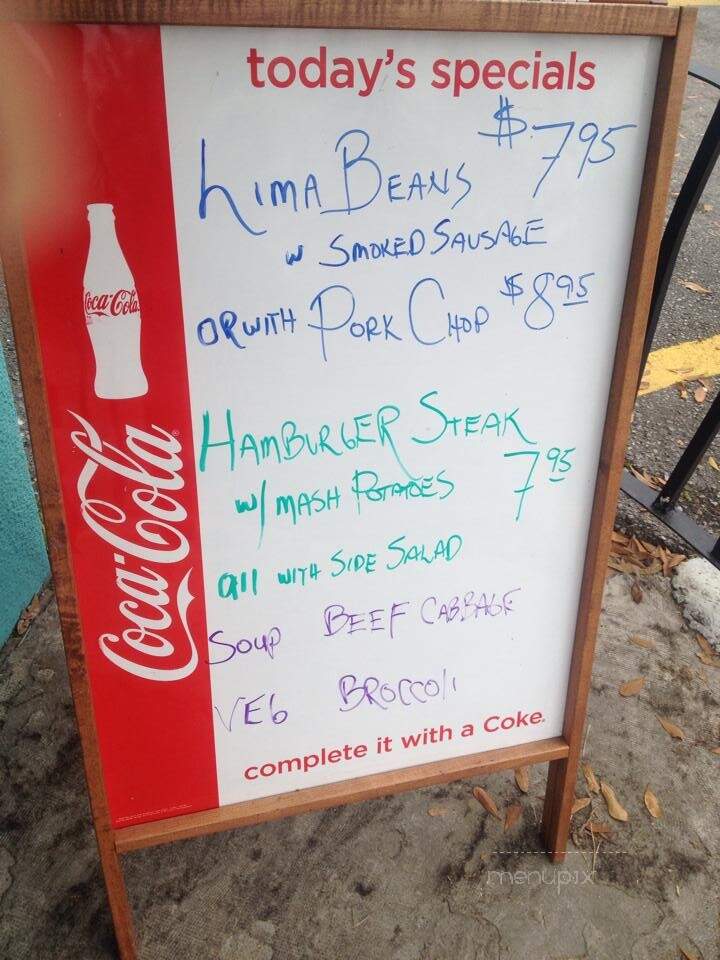 today's specials
LIMA BEANS $7.95
W SMOKED SAUSAGE
OR WITH PORK CHOP $8.95
HAMBURGER STEAK
W/ MASH POTATOES 7.95
all WITH SIDE SALAD
SOUP BEEF CABBAGE
VEG BROCCOLI
complete it with a Coke.
Coca-Cola
Coca-Cola
menupix